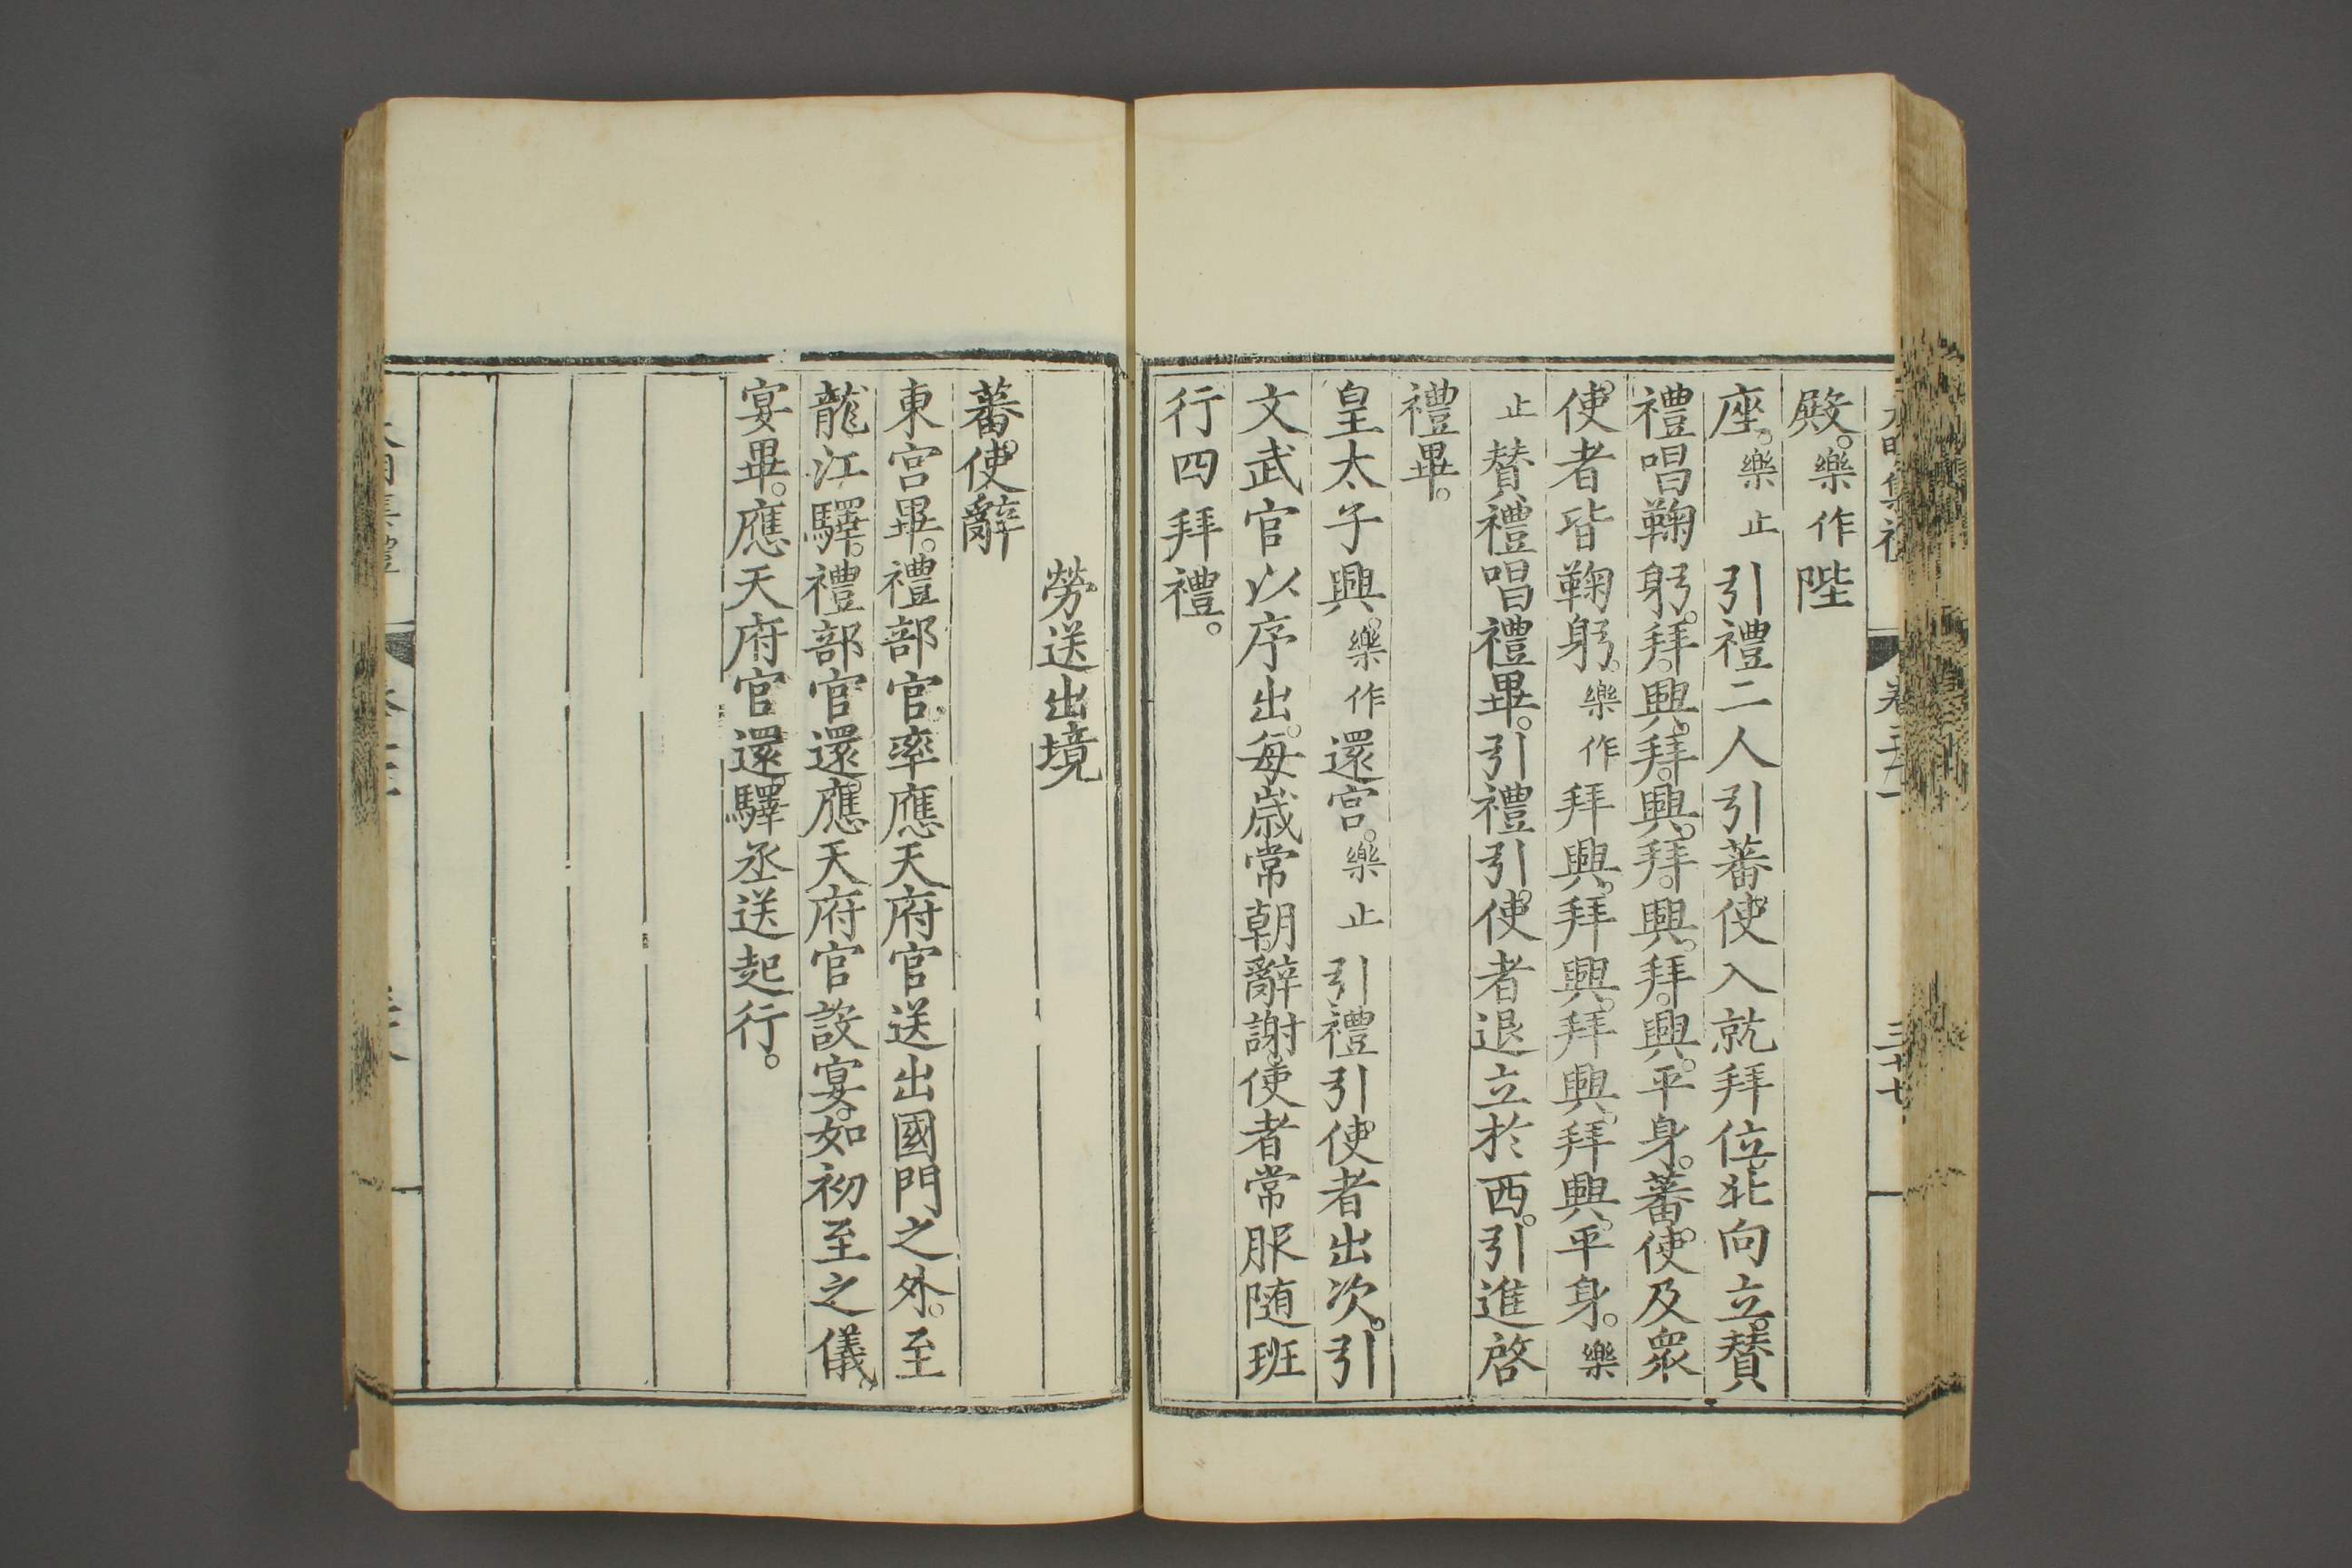 殿。樂作陞
座。樂止引禮二人引蕃使入就拜位。北向立。贊
禮唱鞠躬。拜。興。拜。興。拜。興。拜。興。平身。蕃使及衆
使者皆鞠躬。樂作拜興。拜興。拜興。拜興。平身。樂
止贊禮唱禮畢。引禮引使者退立於西。引進啓
禮畢。
皇太子興。樂作還宮。樂止引禮引使者出次。引
文武官以序出。每歲常朝辭謝使者常服随班
行四拜禮。
勞送出境
蕃使辭
東宮畢。禮部官率應天府官送出國門之外。至
龍江驛。禮部官還應天府官設宴。如初至之儀。
宴畢。應天府官還驛丞送起行。